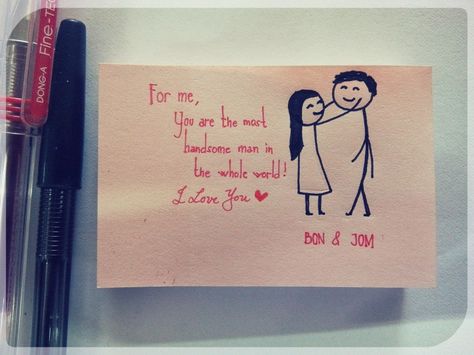 DONG-A Fine-TEC
For me,
You are the most
handsome man in
the whole world!
I Love You ♥
BON & JOM